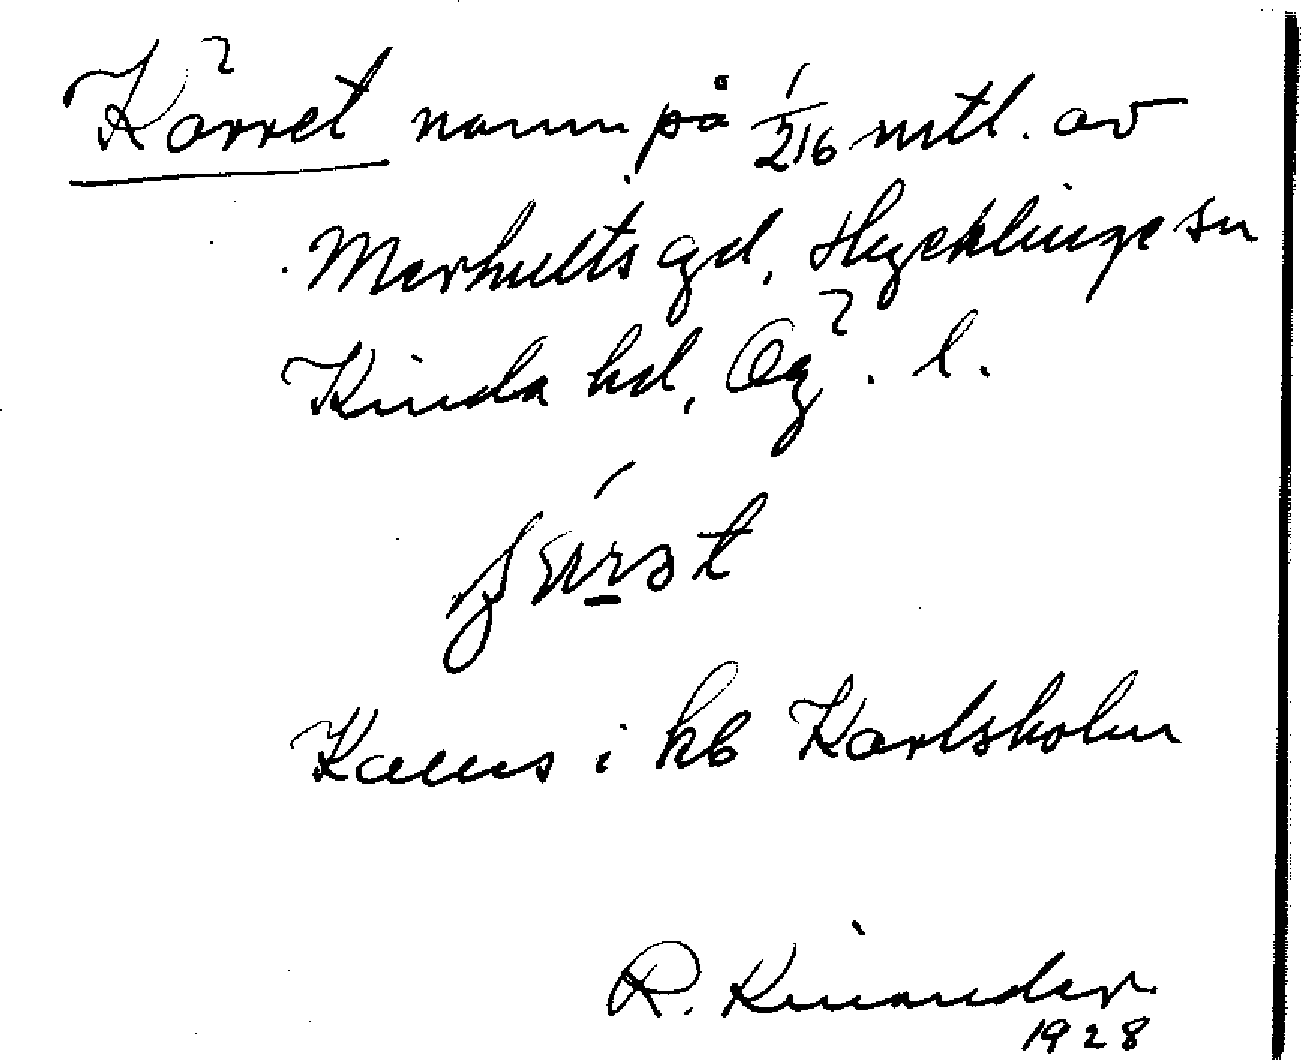 Kärret namn på 1/216 mtl. av
Merhults gd, Hycklinge sn
Kinda hd, Ög. l.
Kallas i kb Karlsholm
R. Kinander
1928